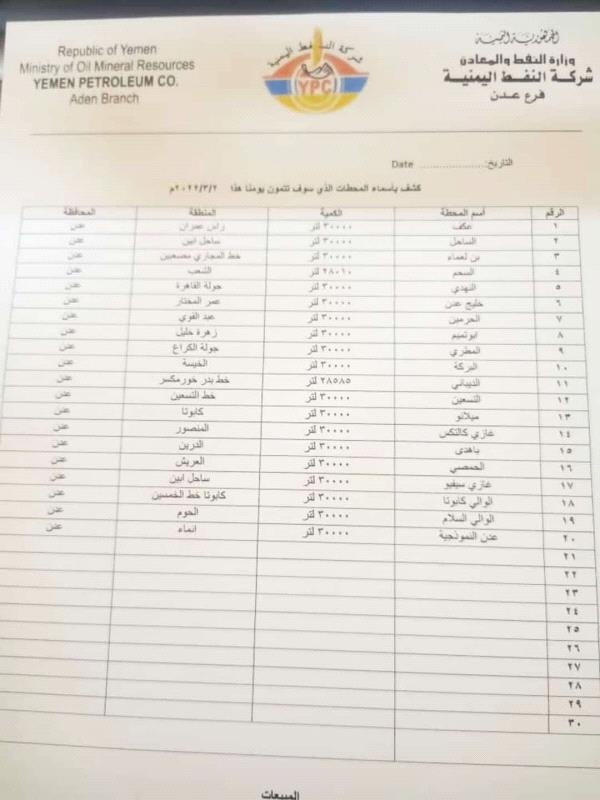 Republic of Yemen
Ministry of Oil Mineral Resources
YEMEN PETROLEUM CO.
Aden Branch
شركة النفط اليمنية
YPC
الجمهورية اليمنية
وزارة النفط والمعادن
شركة النفط اليمنية
فرع عدن
التاريخ: .................... Date
كشف بأسماء المحطات الذي سوف تتمون يومنا هذا ٢٠٢٢/٣/٢م
الرقم اسم المحطة الكمية المنطقة المحافظة
١ عكف ٣٠٠٠٠ لتر راس عمران عدن
٢ الساحل ٣٠٠٠٠ لتر ساحل ابين عدن
٣ بن لعماء ٣٠٠٠٠ لتر خط المجاري مصعبين عدن
٤ السحم ٢٨٠١٠ لتر الشعب عدن
٥ النهدي ٣٠٠٠٠ لتر جولة القاهرة عدن
٦ خليج عدن ٣٠٠٠٠ لتر عمر المختار عدن
٧ الحرمين ٣٠٠٠٠ لتر عبد القوي عدن
٨ ابوتميم ٣٠٠٠٠ لتر زهرة خليل عدن
٩ المطري ٣٠٠٠٠ لتر جولة الكراع عدن
١٠ البركة ٣٠٠٠٠ لتر الخيسة عدن
١١ الذيباني ٢٨٥٨٥ لتر خط بدر خورمكسر عدن
١٢ التسعين ٣٠٠٠٠ لتر خط التسعين عدن
١٣ ميلانو ٣٠٠٠٠ لتر كابوتا عدن
١٤ غازي كالتكس ٣٠٠٠٠ لتر المنصور عدن
١٥ باهدى ٣٠٠٠٠ لتر الدرين عدن
١٦ الحمصي ٣٠٠٠٠ لتر العريش عدن
١٧ غازي سيفيو ٣٠٠٠٠ لتر ساحل ابين عدن
١٨ الوالي كابوتا ٣٠٠٠٠ لتر كابوتا خط الخمسين عدن
١٩ الوالي السلام ٣٠٠٠٠ لتر الحوم عدن
٢٠ عدن النموذجية ٣٠٠٠٠ لتر انماء عدن
٢١
٢٢
٢٣
٢٤
٢٥
٢٦
٢٧
٢٨
٢٩
٣٠
المبيعات